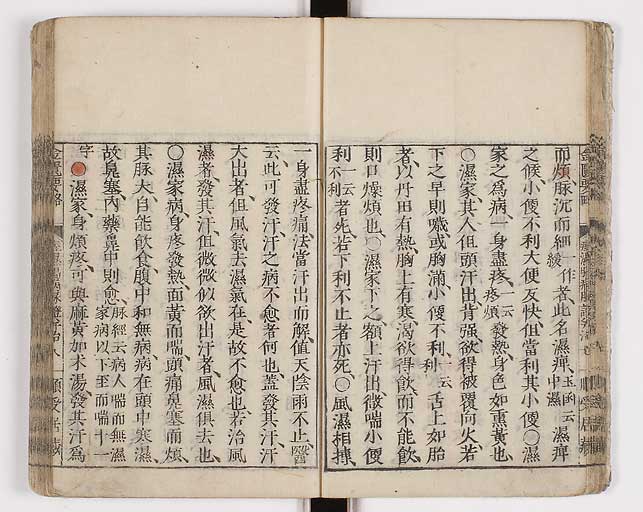 而煩脉沉而細一作緩者此名濕痺玉函云中濕濕痺
之候小便不利大便反快但當利其小便○濕
家之爲病一身盡疼一云疼煩發熱身色如熏黃也
○濕家其人但頭汗出背强欲得被覆向火若
下之早則噦或胸滿小便不利一云利舌上如胎
者以丹田有熱胸上有寒渴欲得飲而不能飲
則口燥煩也○濕家下之額上汗出微喘小便
利一云不利者死若下利不止者亦死○風濕相摶
一身盡疼痛法當汗出而解值天陰雨不止醫
云此可發汗汗之病不愈者何也蓋發其汗汗
大出者但風氣去濕氣在是故不愈也若治風
濕者發其汗但微微似欲出汗者風濕俱去也
○濕家病身疼發熱面黃而喘頭痛鼻塞而煩
其脉大自能飲食腹中和無病病在頭中寒濕
故鼻塞內藥鼻中則愈脉經云病人喘而無濕家病以下至而喘十一
字○濕家身煩疼可與麻黃加朮湯發其汗爲
金匱要略
順受居藏